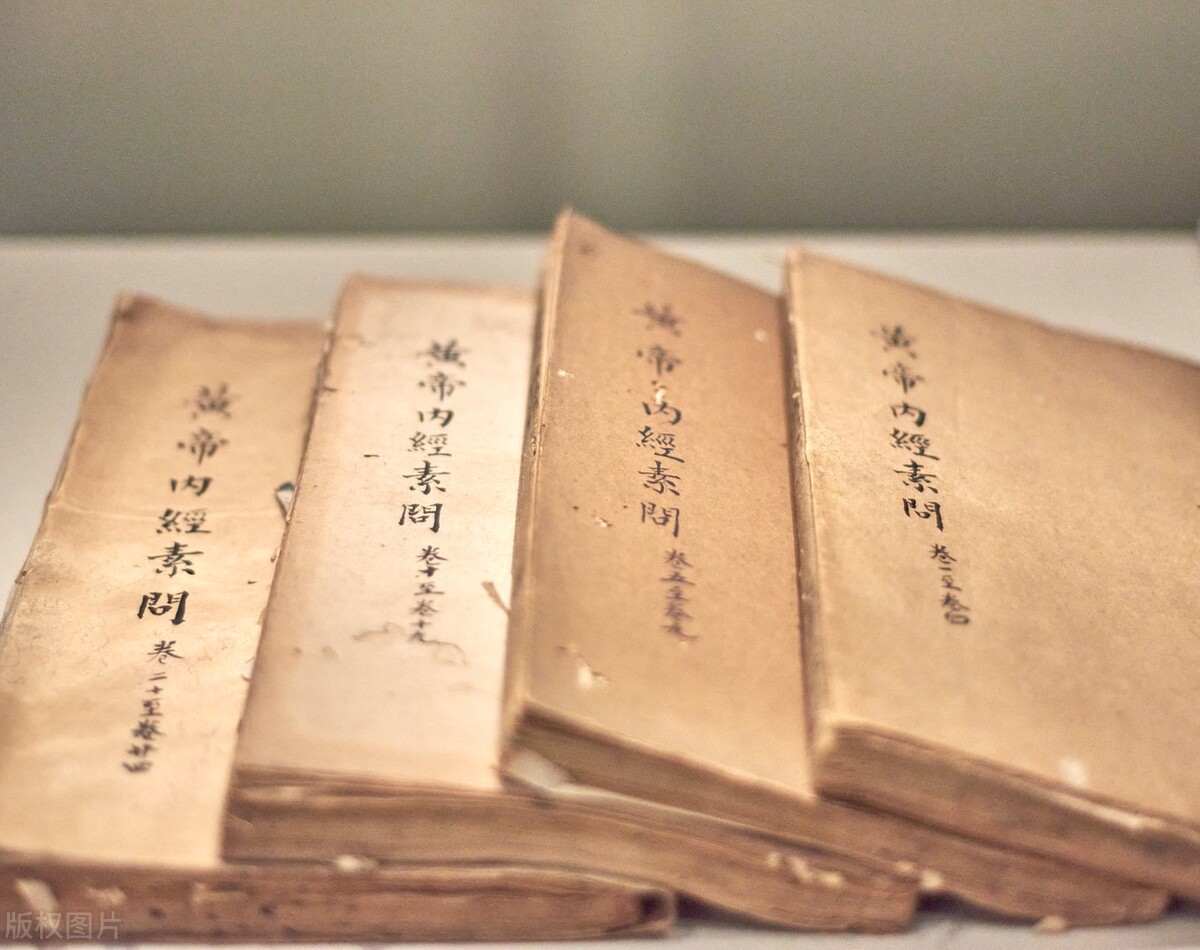 黃帝內經素問 卷一至卷四
黃帝內經素問 卷五至卷九
黃帝內經素問 卷十至卷十九
黃帝內經素問 卷二十至卷廿四
版权图片